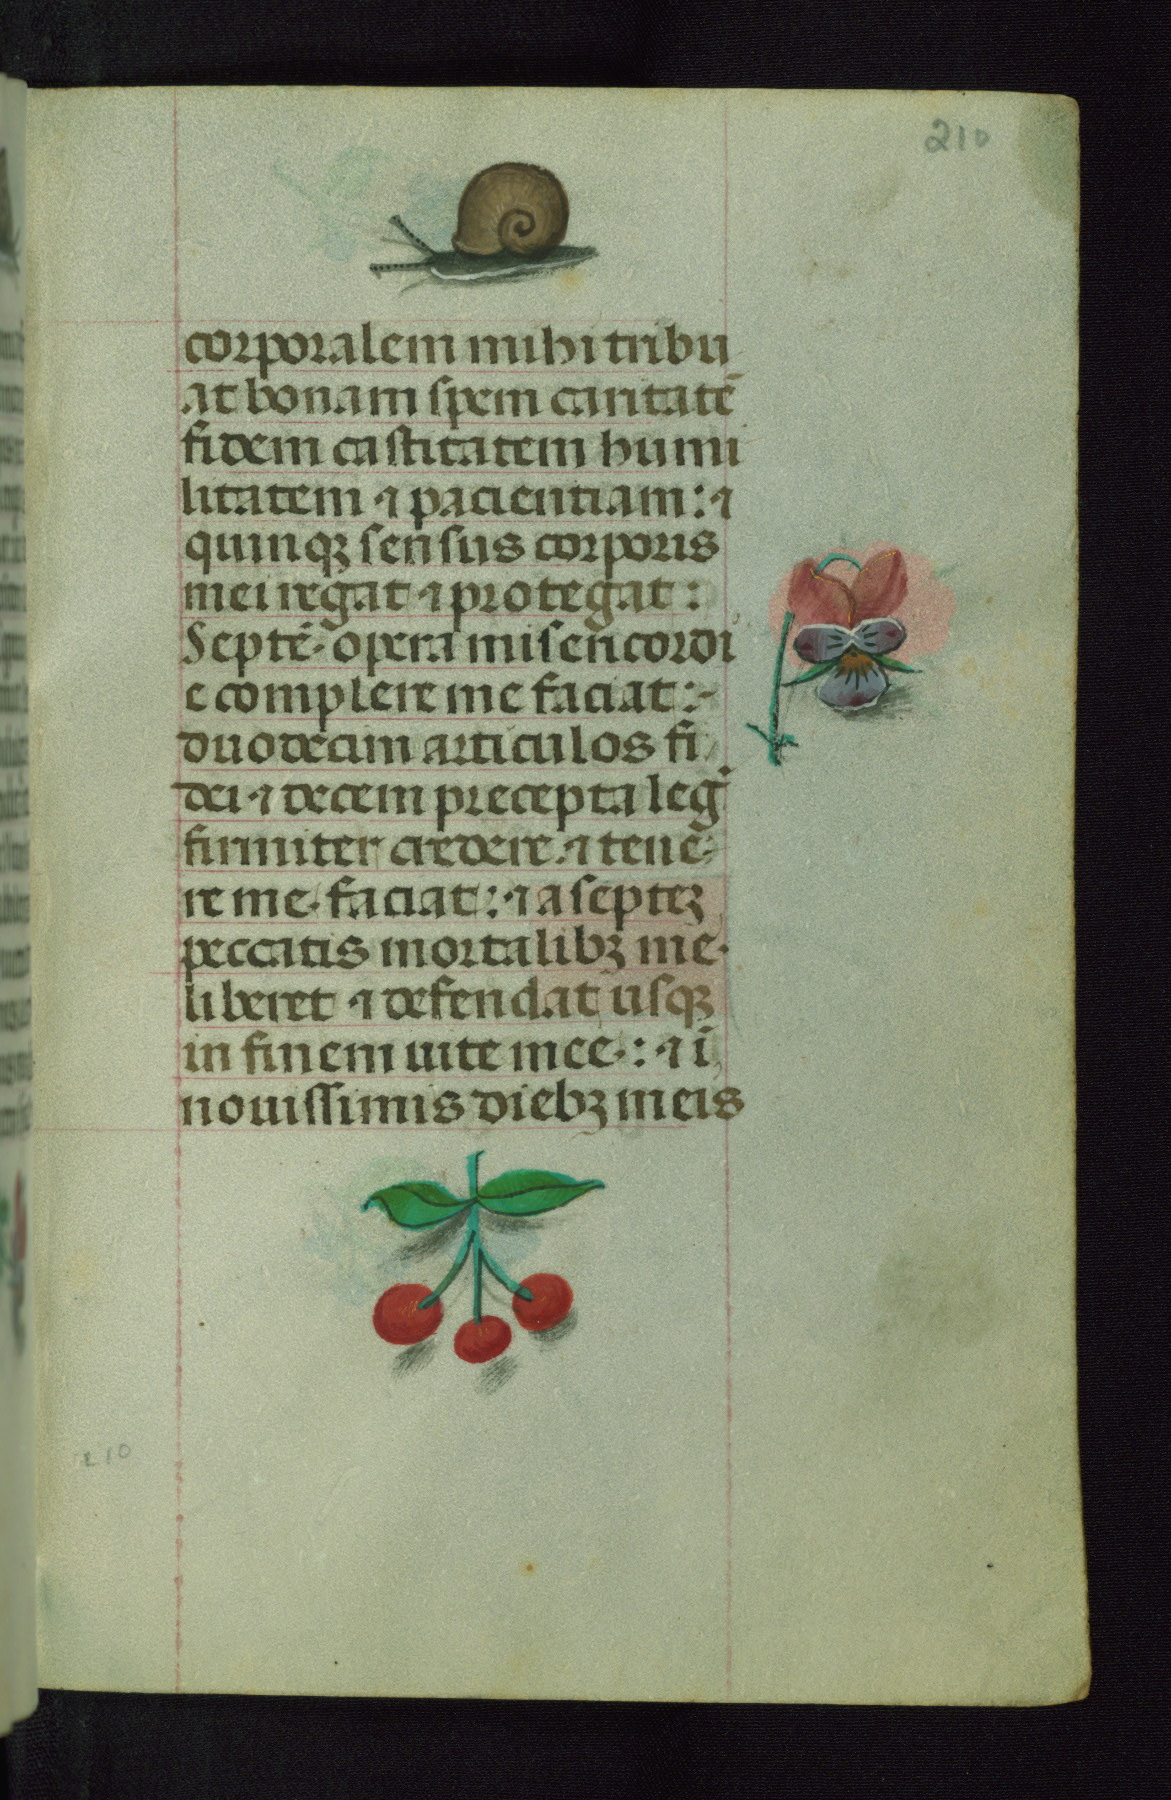 210
corporalem mihi tribu
at bonam spem caritatē
fidem castitatem humi
litatem ⁊ pacientiam: ⁊
quinqꝫ sensus corporis
mei regat ⁊ protegat:
Septē opera misericordi
e complere me faciat:
duodecim articulos fi
dei ⁊ decem precepta leḡ
firmiter credere ⁊ tene
re me faciat: ⁊ a septeꝫ
peccatis mortalibꝫ me
liberet ⁊ defendat usqꝫ
in finem uite mee: ⁊ ī
nouissimis diebꝫ meis
210